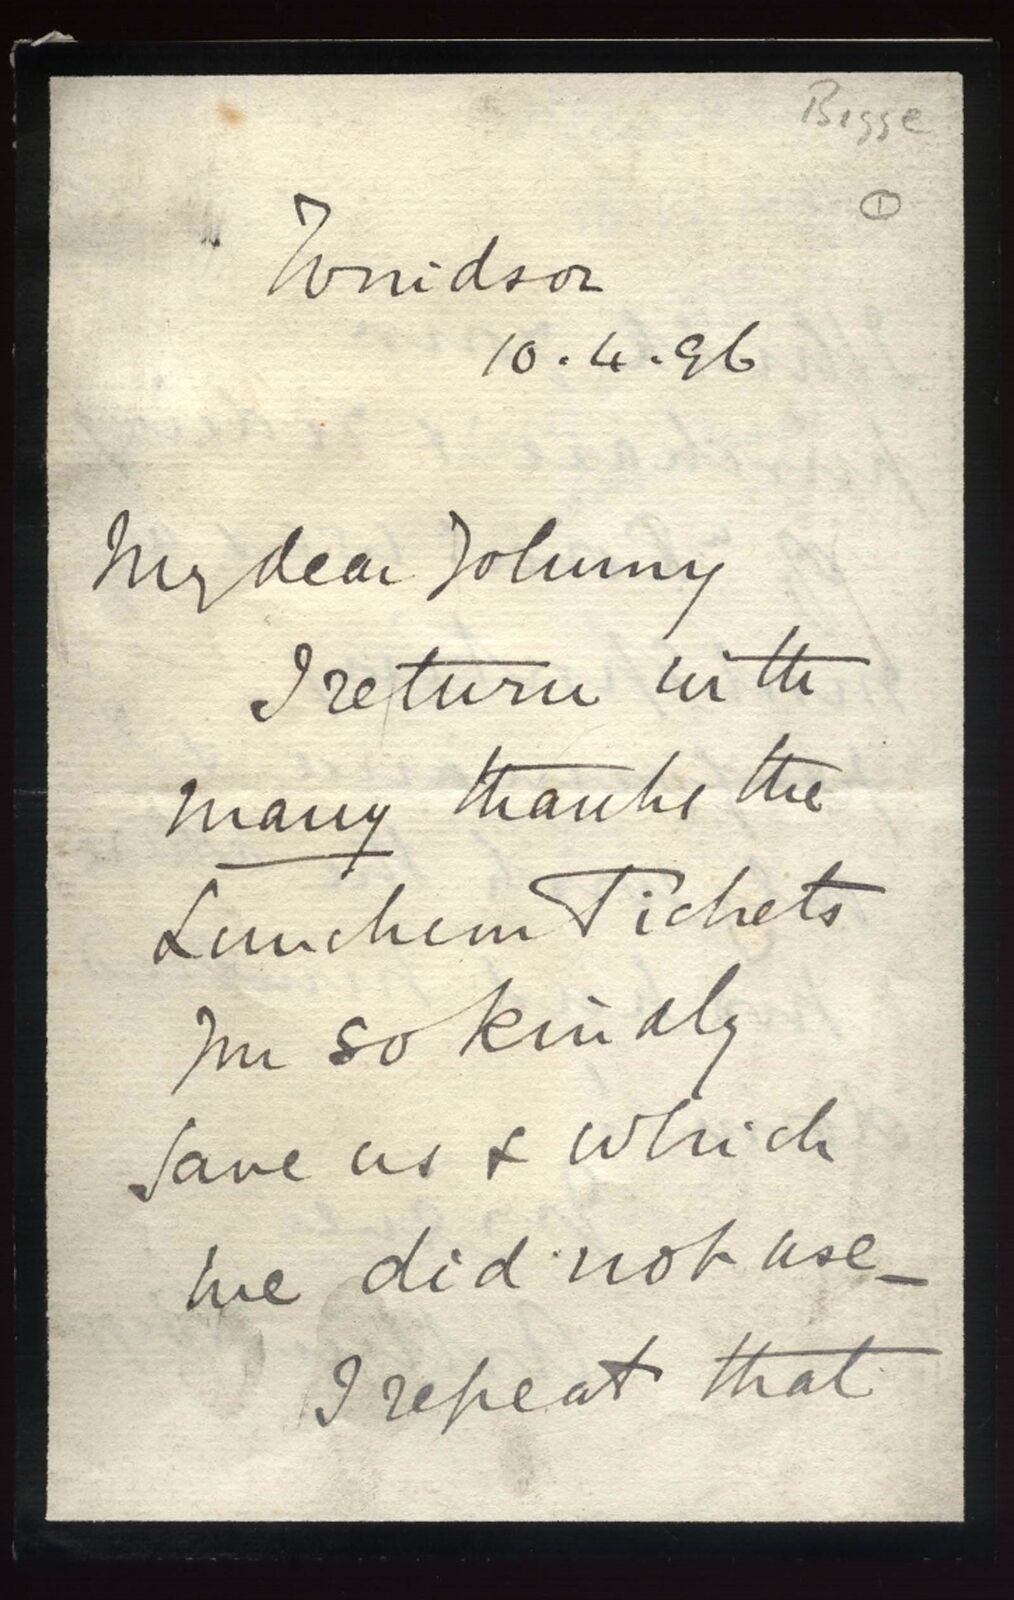 Bigge
1
Windsor
10.4.96
My dear Johnny
I return with
many thanks the
Luncheon Tickets
you so kindly
gave us & which
we did not use_
I repeat that